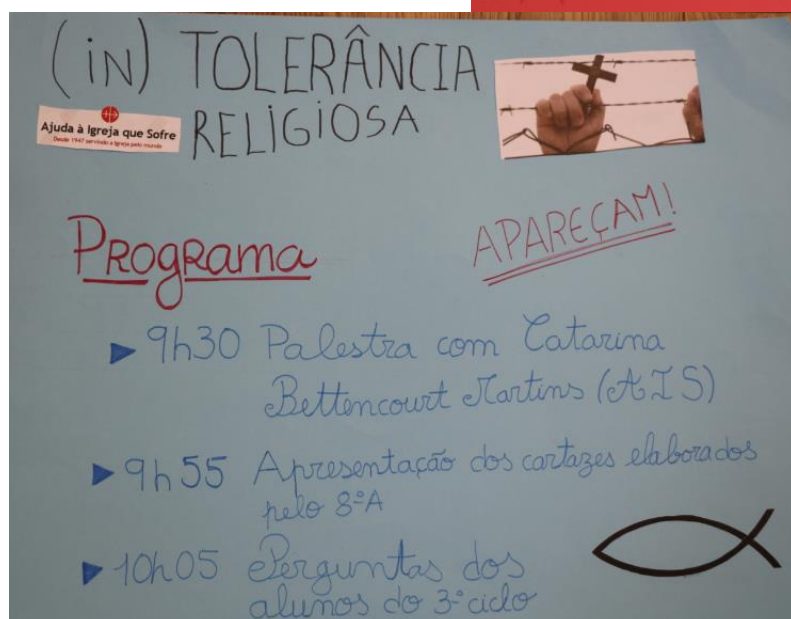 (iN) TOLERÂNCIA
RELIGIOSA
Ajuda à Igreja que Sofre
Desde 1947 servindo a Igreja pelo mundo
APAREÇAM!
Programa
9h30 Palestra com Catarina
Bettencourt Martins (AIS)
9h55 Apresentação dos cartazes elaborados
pelo 8ºA
10h05 Perguntas dos
alunos do 3º ciclo